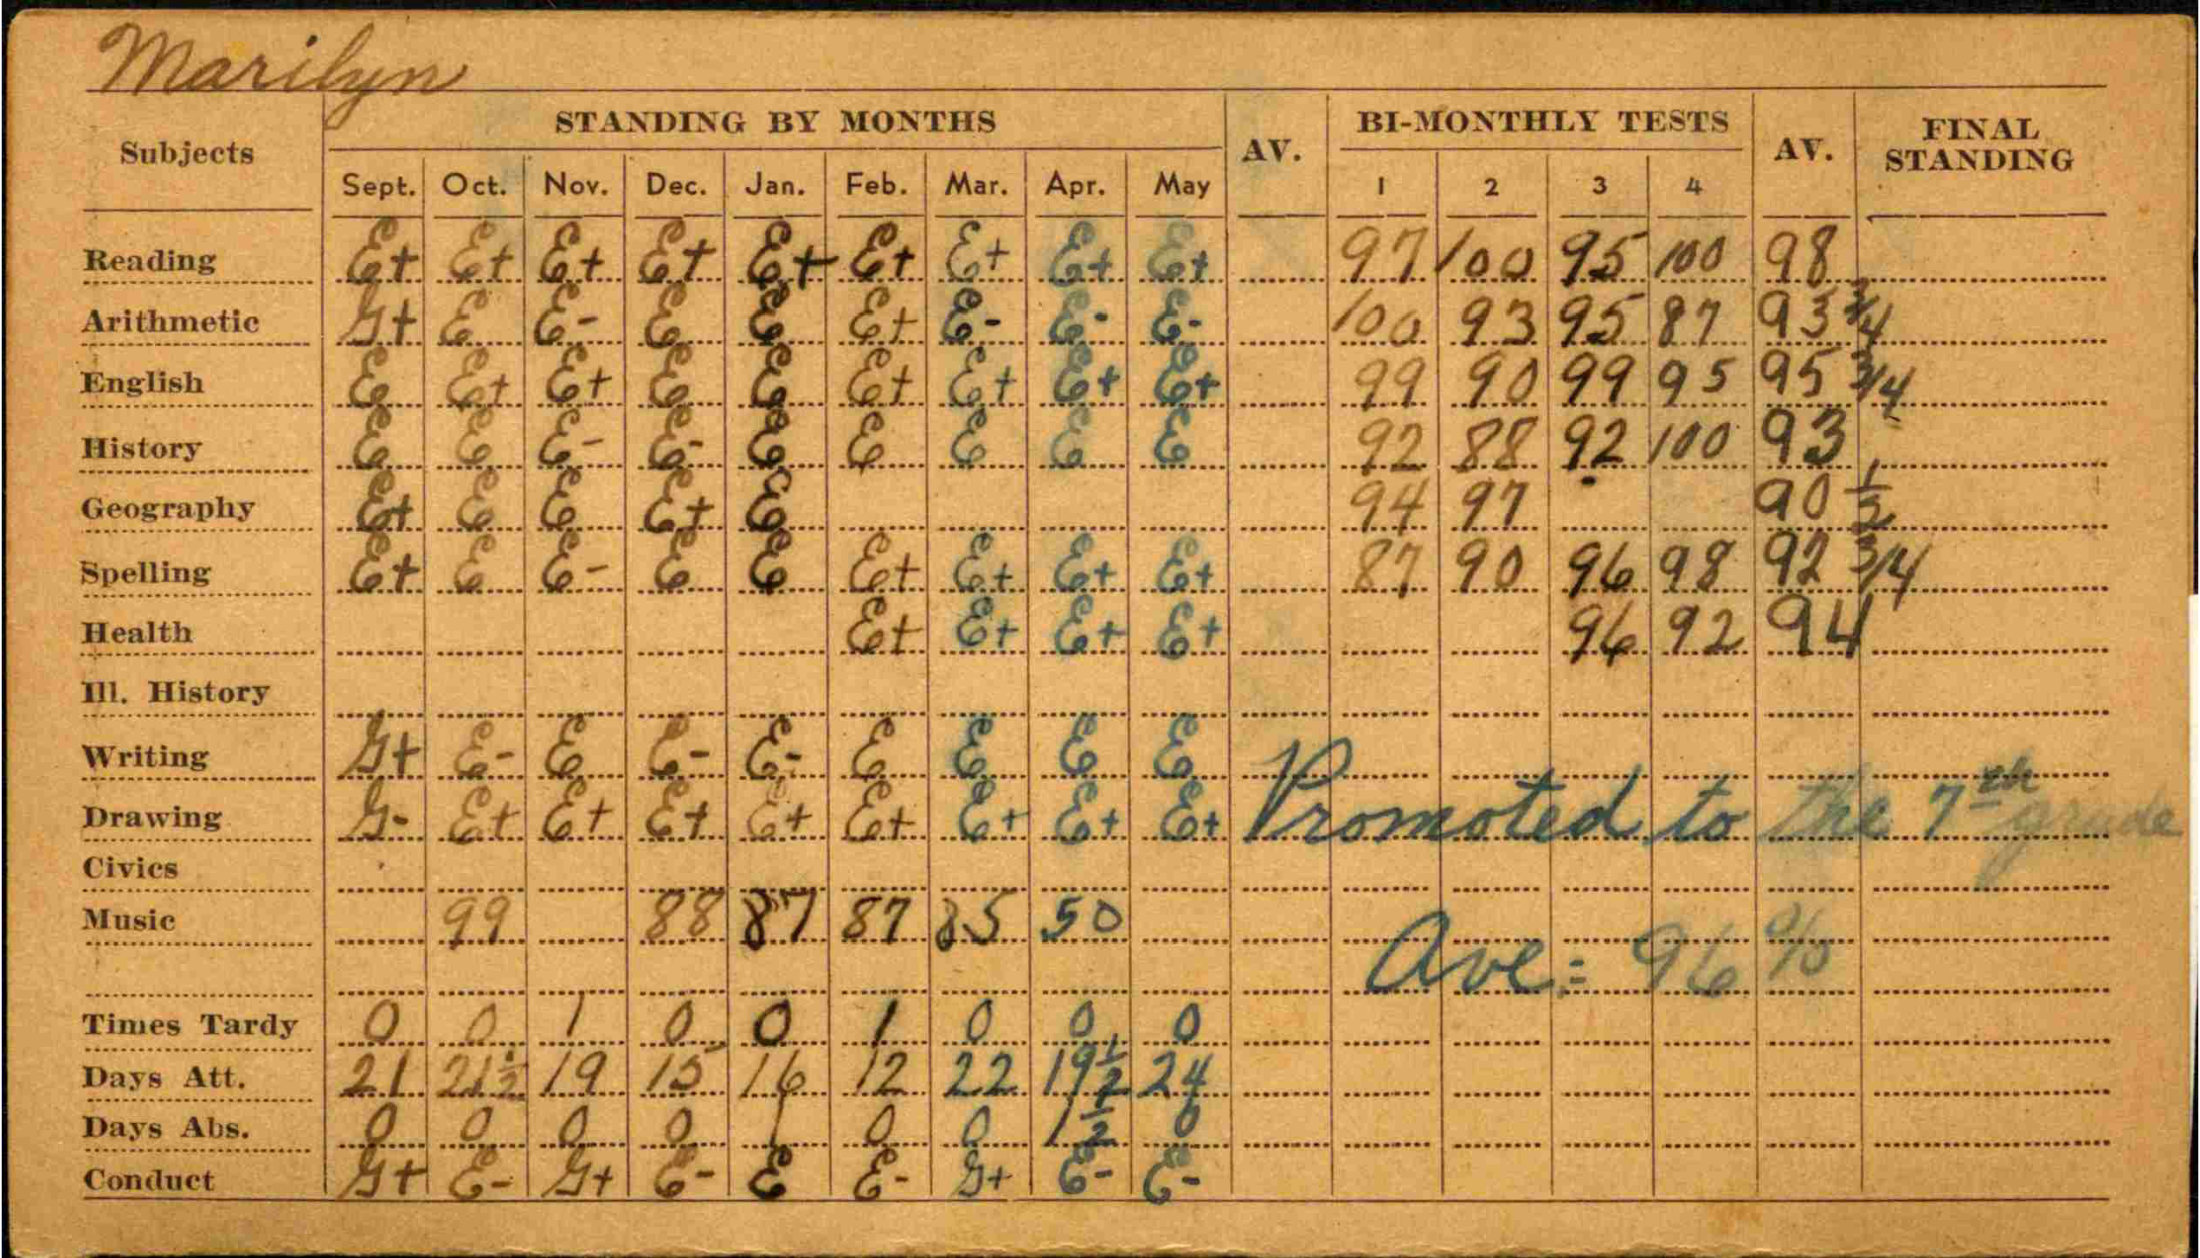 Marilyn
Subjects STANDING BY MONTHS AV. BI-MONTHLY TESTS AV. FINAL STANDING
Sept. Oct. Nov. Dec. Jan. Feb. Mar. Apr. May 1 2 3 4
Reading E+ E+ E+ E+ E+ E+ E+ E+ E+ 97 100 95 100 98
Arithmetic G+ E E- E E E+ E- E- E- 100 93 95 87 93 3/4
English E E+ E+ E E E+ E+ E+ E+ 99 90 99 95 95 3/4
History E E E- E- E E E E E 92 88 92 100 93
Geography E+ E E E+ E 94 97 90 1/2
Spelling E+ E E- E E E+ E+ E+ E+ 87 90 96 98 92 3/4
Health E+ E+ E+ E+ 96 92 94
Ill. History
Writing G+ E- E E- E- E E E E
Drawing G- E+ E+ E+ E+ E+ E+ E+ E+ Promoted to the 7th grade
Civics
Music 99 88 87 87 85 50
Ave: 96%
Times Tardy 0 0 1 0 0 1 0 0 0
Days Att. 21 21 1/2 19 15 16 12 22 19 1/2 24
Days Abs. 0 0 0 0 1 0 0 1 1/2 0
Conduct G+ E- G+ E- E E- G+ E- E-